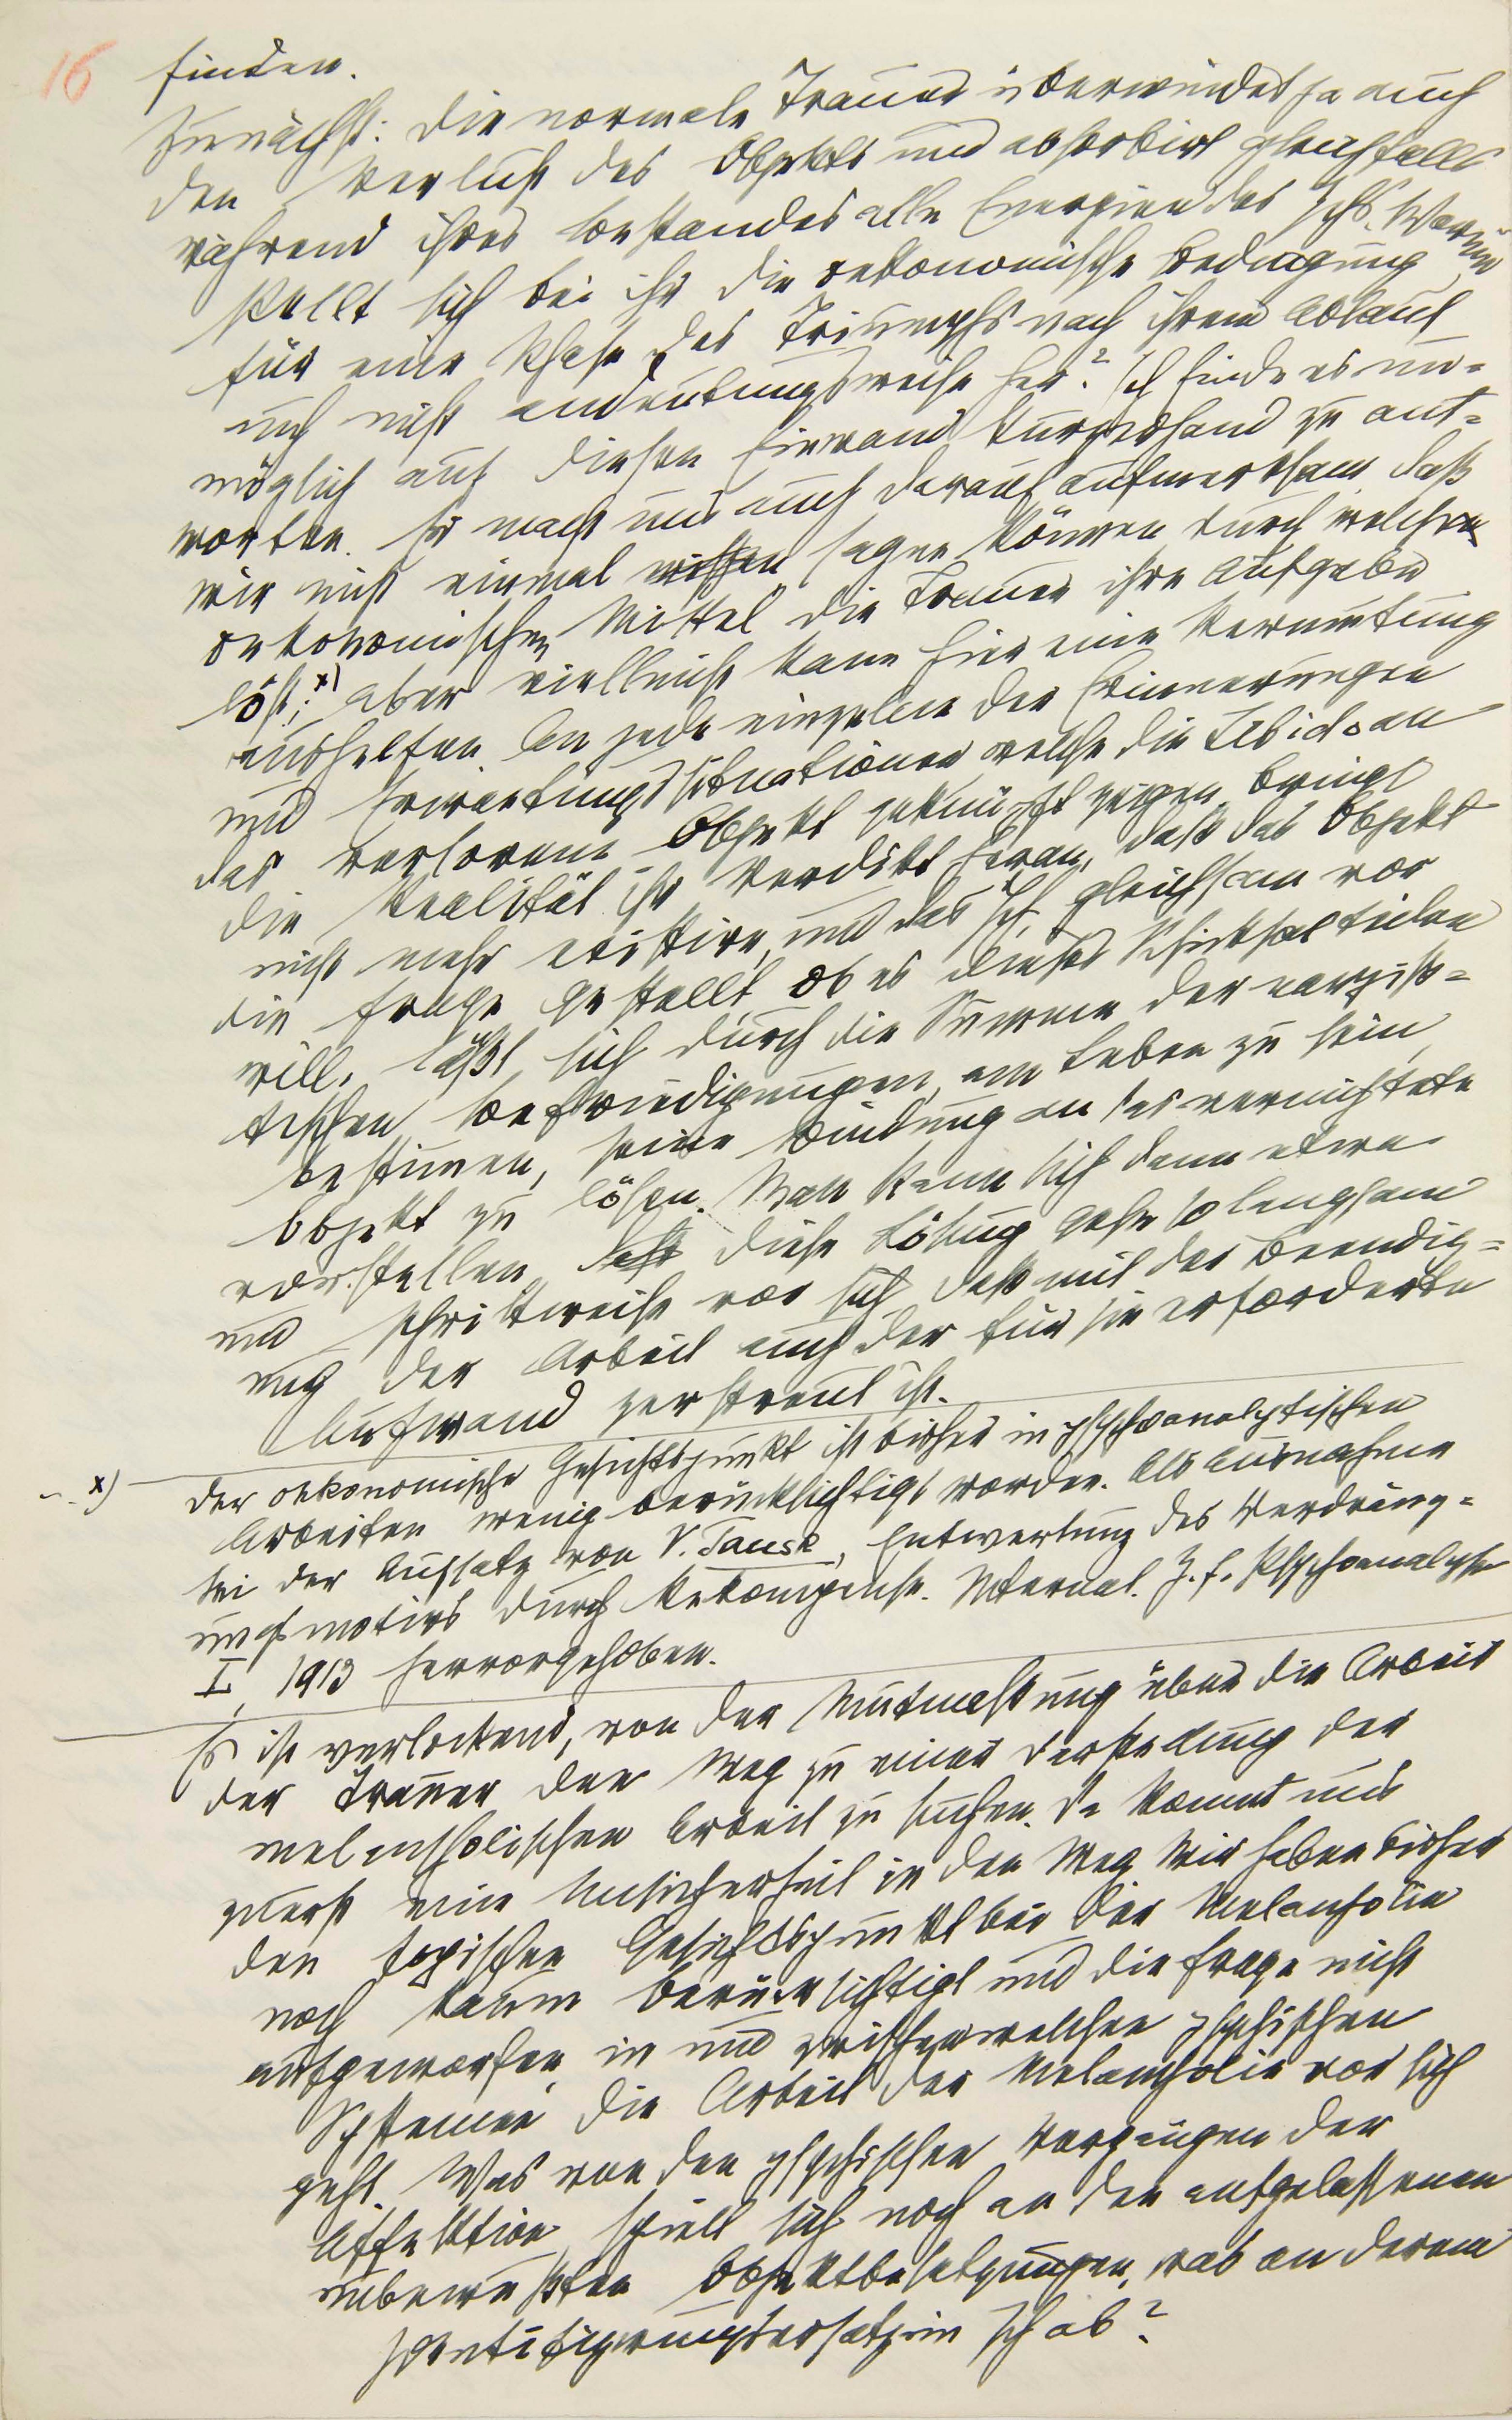 16
finden.
Zunächst: Die normale Trauer überwindet ja auch
den Verlust des Objekts und absorbirt gleichfalls
während ihres Bestandes alle Energien des Ichs. Warum
stellt sich bei ihr die oekonomische Bedingung
für eine Phase des Triumphs nach ihrem Ablauf
auch nicht andeutungsweise her? Ich finde es un=
möglich auf diesen Einwand kurzerhand zu ant=
worten. Er macht uns auch darauf aufmerksam, daß
wir nicht einmal wissen sagen können, durch welche
oekonomischen Mittel die Trauer ihre Aufgabe
löst; x) aber vielleicht kann hier eine Vermutung
aushelfen. An jede einzelne der Erinnerungen
und Erwartungssituationen welche die Libido an
das verlorene Objekt geknüpft zeigen, bringt
die Realität ihr Verdikt heran, daß das Objekt
nicht mehr existire, und das Ich, gleichsam vor
die Frage gestellt, ob es dieses Schicksal teilen
will, läßt sich durch die Summe der narziß=
tischen Befriedigungen, am Leben zu sein,
bestimmen, seine Bindung an das vernichtete
Objekt zu lösen. Man kann sich dann etwa
vorstellen, daß diese Lösung gehe so langsam
und schrittweise vor sich, daß mit der Beendig=
ung der Arbeit auch der für sie erforderte
Aufwand zerstreut ist.
x) Der oekonomische Gesichtspunkt ist bisher in psychoanalytischen
Arbeiten wenig berücksichtigt worden. Als Ausnahme
sei der Aufsatz von V. Tausk, Entwertung des Verdräng=
ungsmotivs durch Rekompense. Internat. Z. f. Psychoanalyse
I, 1913 hervorgehoben.
Es ist verlockend, von der Mutmaßung über die Arbeit
der Trauer den Weg zu einer Darstellung der
melancholischen Arbeit zu suchen. Da kommt uns
zuerst eine Unsicherheit in den Weg. Wir haben bisher
den topischen Gesichtspunkt bei der Melancholie
noch kaum berücksichtigt und die Frage nicht
aufgeworfen, in und zwischen welchen psychischen
Systemen die Arbeit der Melancholie vor sich
geht. Was von den psychischen Vorgängen der
Affektion spielt sich noch an den aufgelassenen
unbewußten Objektbesetzungen, was an deren
Identifizierungsersatz im Ich ab?